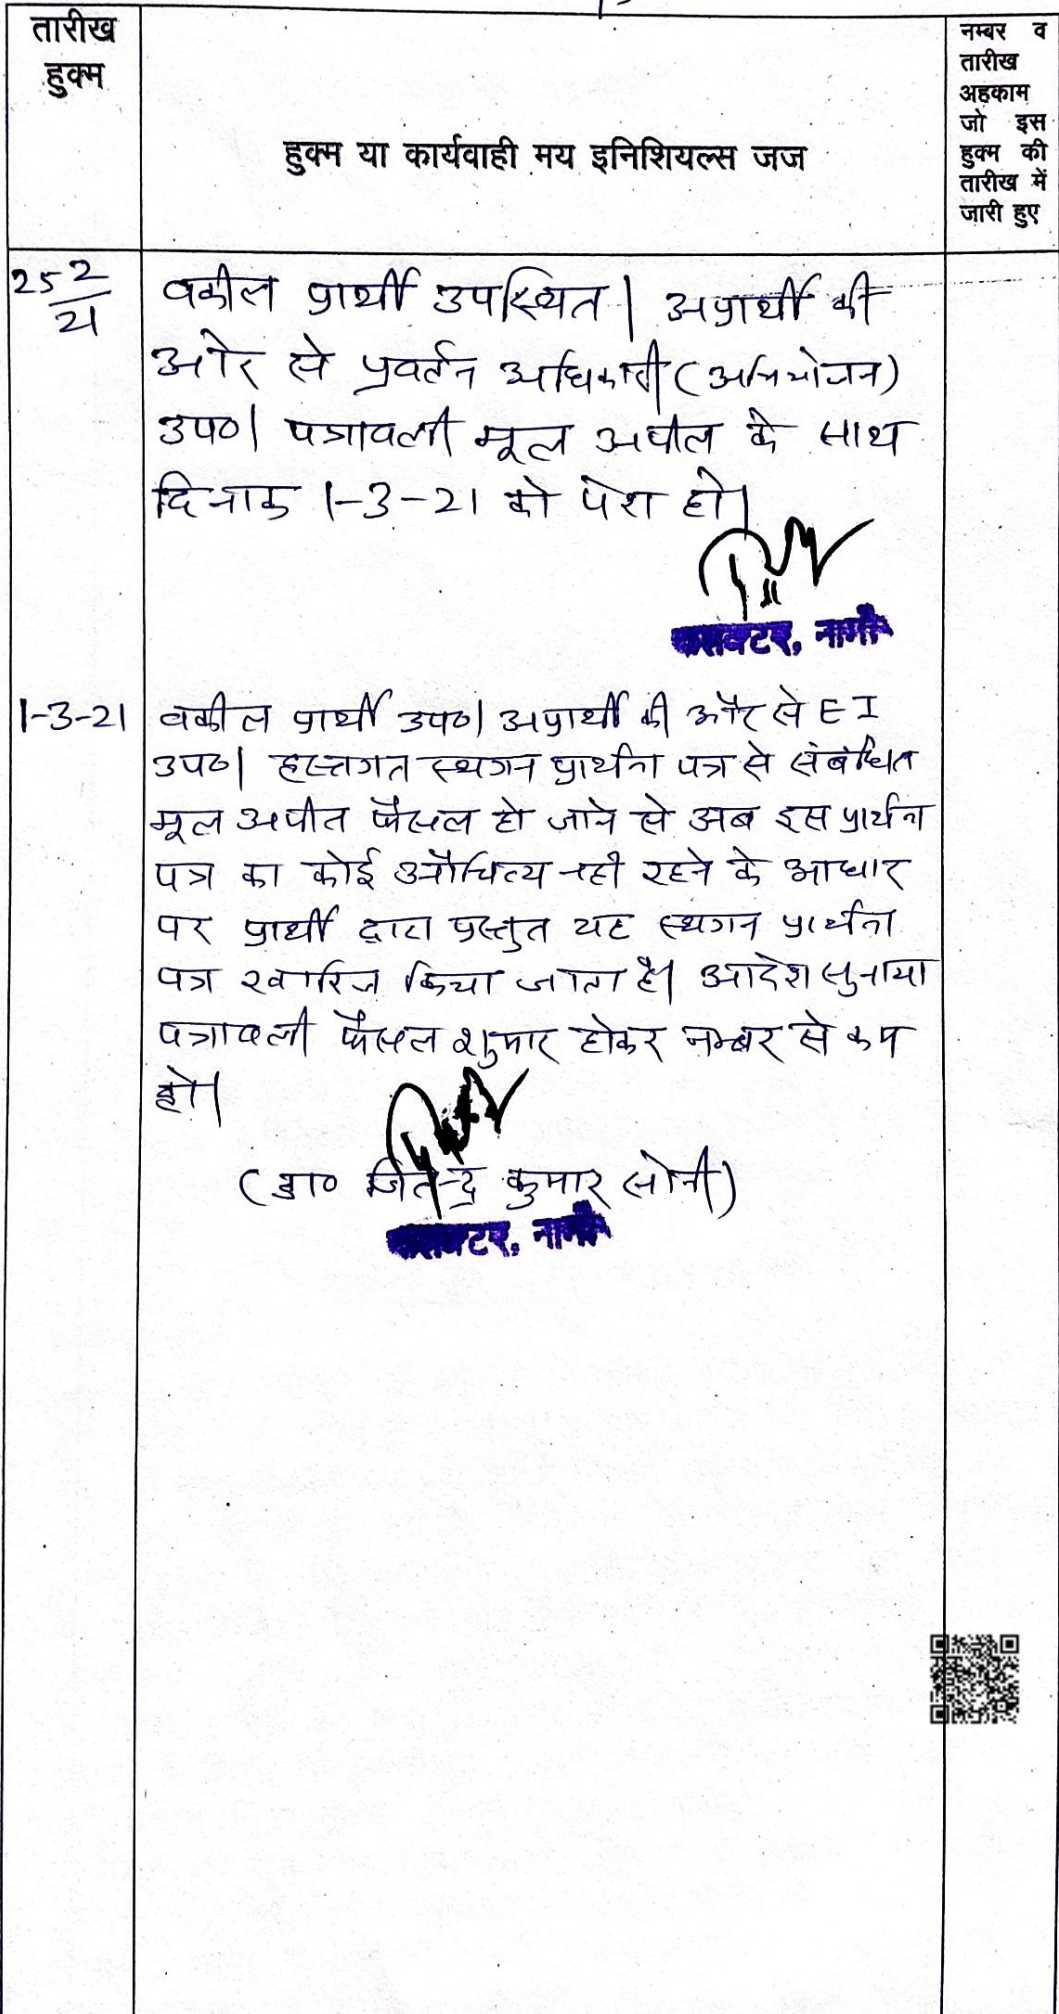 तारीख
हुक्म
हुक्म या कार्यवाही मय इनिशियल्स जज
नम्बर व
तारीख
अहकाम
जो इस
हुक्म की
तारीख में
जारी हुए
25 2/21
वकील प्रार्थी उपस्थित। अप्रार्थी की
ओर से प्रवर्तन अधिकारी (अभियोजन)
उप०। पत्रावली मूल अपील के साथ
दिनांक 1-3-21 को पेश हो।
कलक्टर, नागौर
1-3-21
वकील प्रार्थी उप०। अप्रार्थी की और से E I
उप०। हस्तगत स्थगन प्रार्थना पत्र से संबंधित
मूल अपील फैसल हो जाने से अब इस प्रार्थना
पत्र का कोई औचित्य नही रहने के आधार
पर प्रार्थी द्वारा प्रस्तुत यह स्थगन प्रार्थना
पत्र खारिज किया जाता है। आदेश सुनाया
पत्रावली फैसल शुमार होकर नम्बर से कम
हो।
(डा० जितेन्द्र कुमार सोनी)
कलक्टर, नागौर